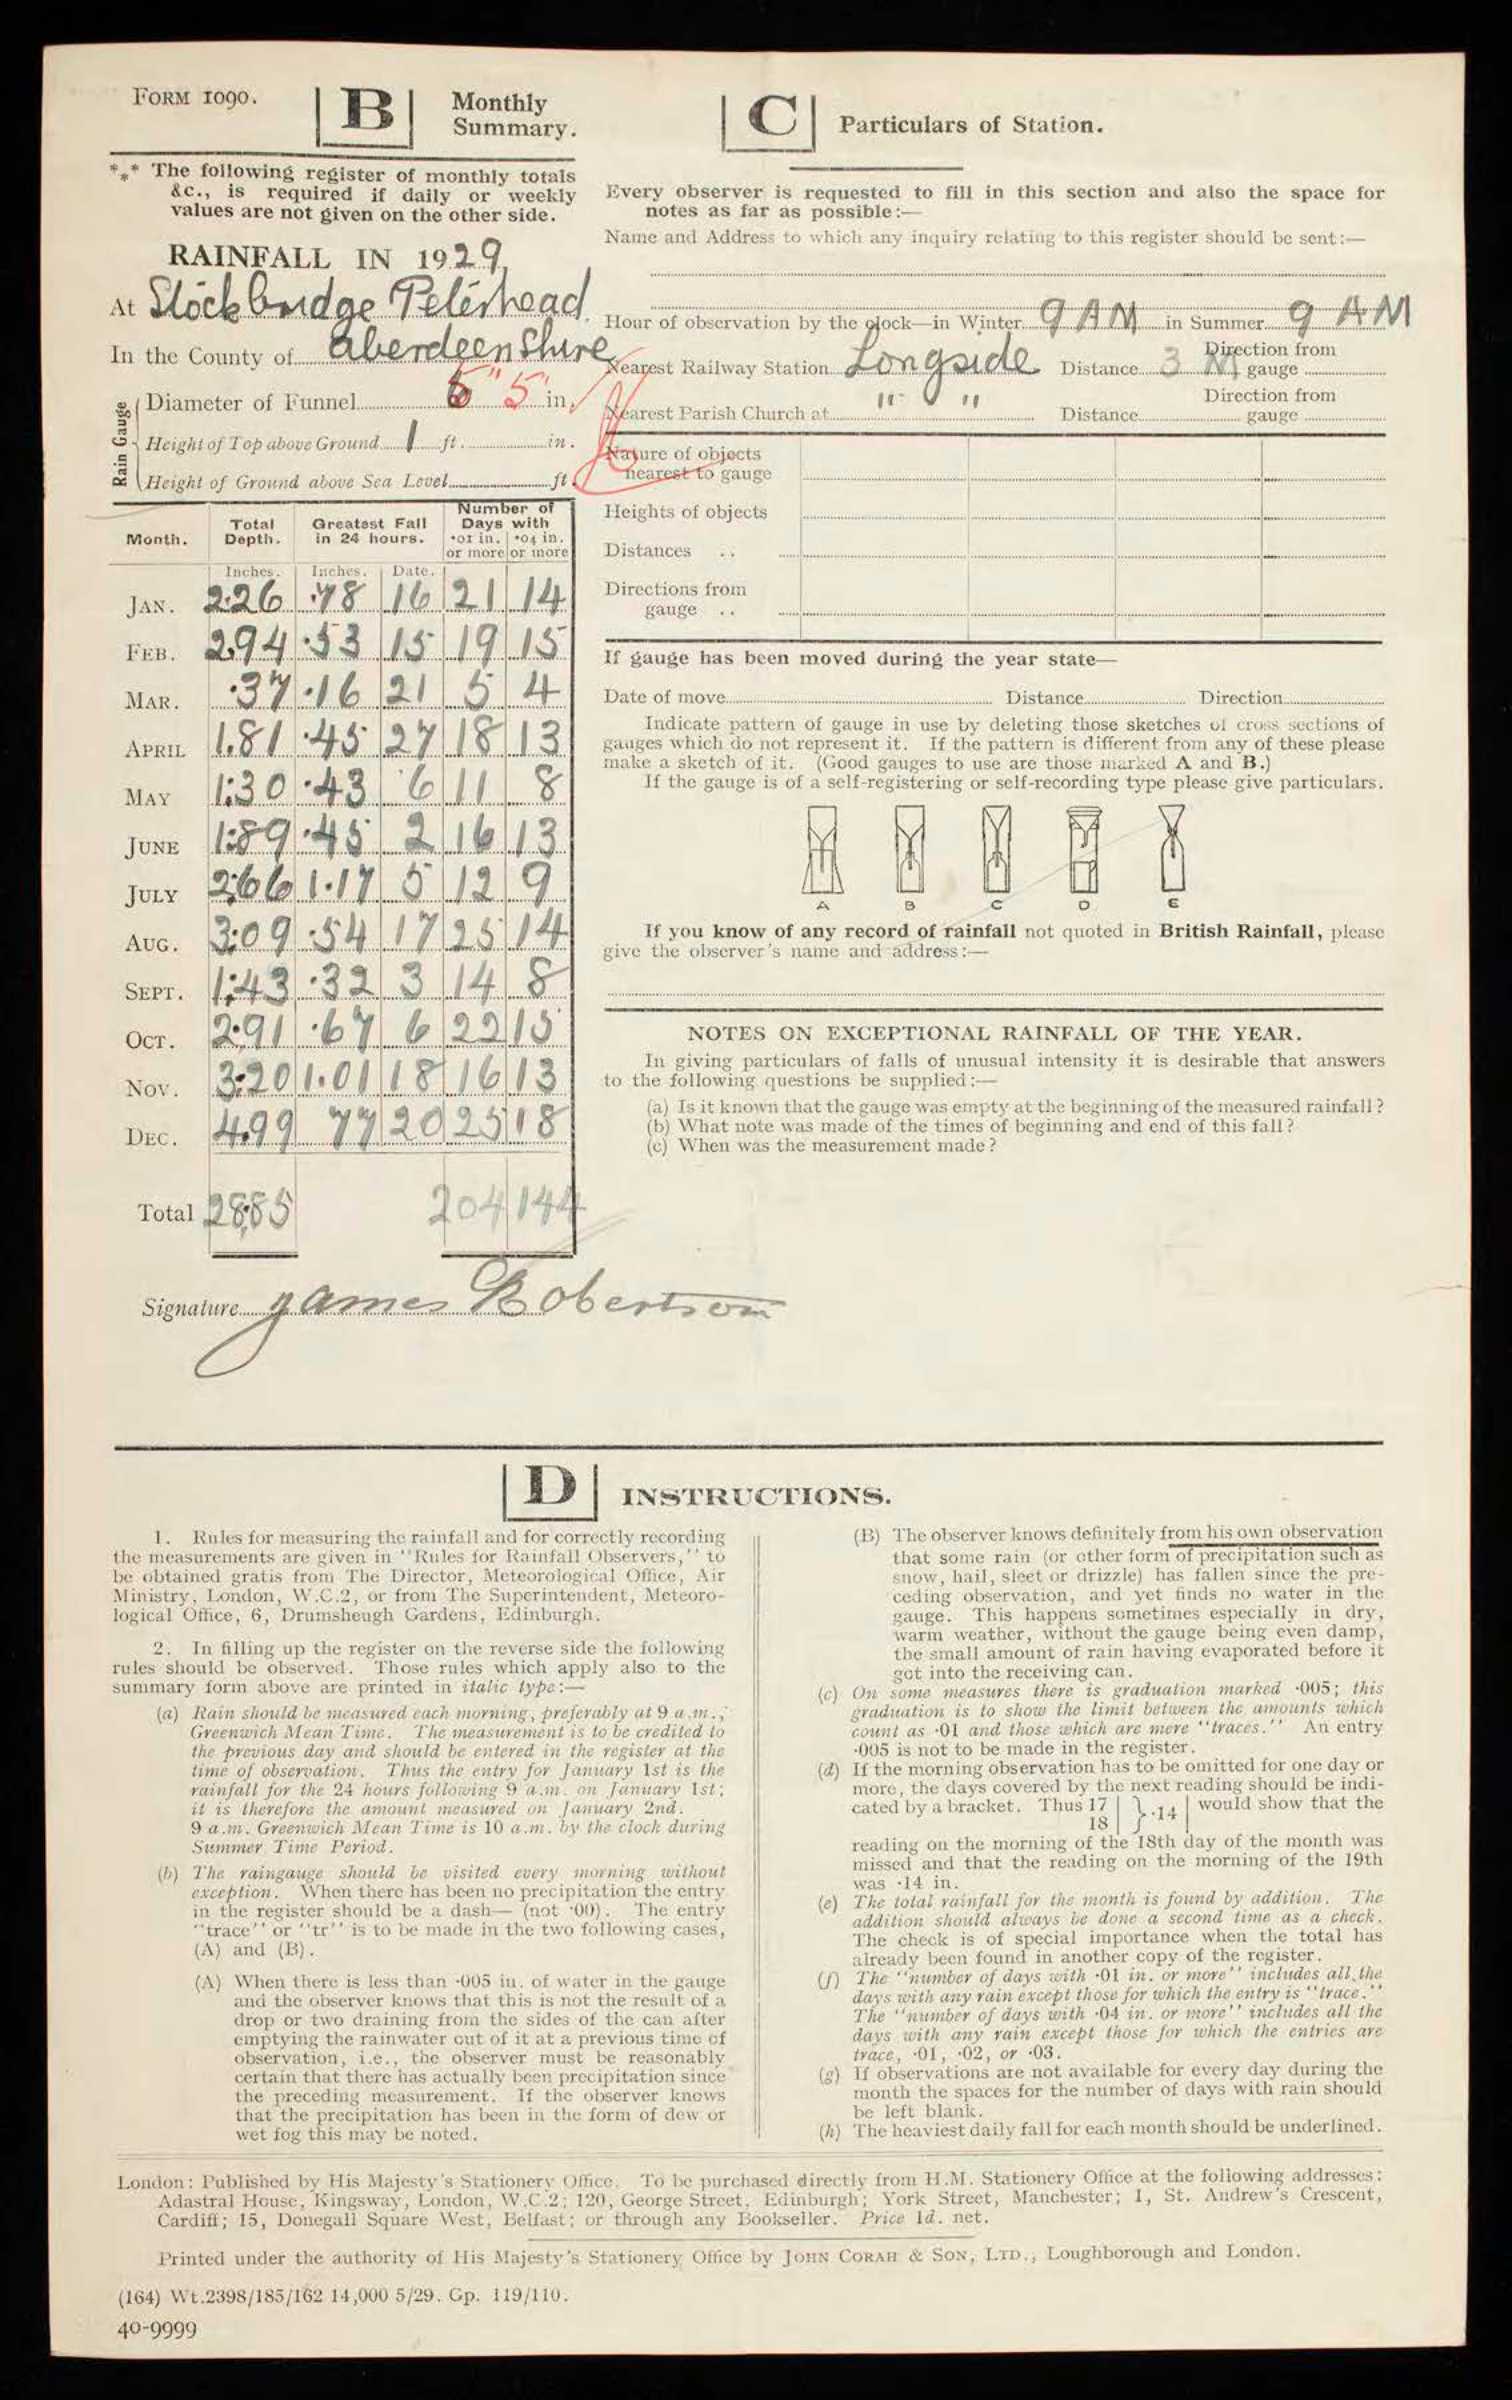 FORM 1090.
B
Monthly
Summary.
*** The following register of monthly totals
&c., is required if daily or weekly
values are not given on the other side.
RAINFALL IN 1929
At Stockbridge Peterhead.
In the County of Aberdeenshire
Rain Gauge
Diameter of Funnel 5" in.
Height of Top above Ground 1 ft. in.
Height of Ground above Sea Level ft.
Month. Total Depth. Greatest Fall in 24 hours. Number of Days with ·01 in. or more ·04 in. or more
Inches. Inches. Date.
JAN. 2.26 .78 16 21 14
FEB. 2.94 .53 15 19 15
MAR. .37 .16 21 5 4
APRIL 1.81 .45 27 18 13
MAY 1.30 .43 6 11 8
JUNE 1.89 .45 2 16 13
JULY 2.66 1.17 5 12 9
AUG. 3.09 .54 17 25 14
SEPT. 1.43 .32 3 14 8
OCT. 2.91 .67 6 22 15
NOV. 3.20 1.01 18 16 13
DEC. 4.99 77 20 25 18
Total 28.85 204 144
Signature James Robertson
C
Particulars of Station.
Every observer is requested to fill in this section and also the space for
notes as far as possible:—
Name and Address to which any inquiry relating to this register should be sent:—
Hour of observation by the clock—in Winter 9 AM in Summer 9 AM
Nearest Railway Station Longside Distance 3 M Direction from gauge
Nearest Parish Church at " " Distance Direction from gauge
Nature of objects
nearest to gauge
Heights of objects
Distances ..
Directions from
gauge ..
If gauge has been moved during the year state—
Date of move Distance Direction
Indicate pattern of gauge in use by deleting those sketches of cross sections of
gauges which do not represent it. If the pattern is different from any of these please
make a sketch of it. (Good gauges to use are those marked A and B.)
If the gauge is of a self-registering or self-recording type please give particulars.
A B C D E
If you know of any record of rainfall not quoted in British Rainfall, please
give the observer's name and address:—
NOTES ON EXCEPTIONAL RAINFALL OF THE YEAR.
In giving particulars of falls of unusual intensity it is desirable that answers
to the following questions be supplied:—
(a) Is it known that the gauge was empty at the beginning of the measured rainfall?
(b) What note was made of the times of beginning and end of this fall?
(c) When was the measurement made?
D
INSTRUCTIONS.
1. Rules for measuring the rainfall and for correctly recording
the measurements are given in "Rules for Rainfall Observers," to
be obtained gratis from The Director, Meteorological Office, Air
Ministry, London, W.C.2, or from The Superintendent, Meteoro-
logical Office, 6, Drumsheugh Gardens, Edinburgh.
2. In filling up the register on the reverse side the following
rules should be observed. Those rules which apply also to the
summary form above are printed in italic type:—
(a) Rain should be measured each morning, preferably at 9 a.m.,
Greenwich Mean Time. The measurement is to be credited to
the previous day and should be entered in the register at the
time of observation. Thus the entry for January 1st is the
rainfall for the 24 hours following 9 a.m. on January 1st;
it is therefore the amount measured on January 2nd.
9 a.m. Greenwich Mean Time is 10 a.m. by the clock during
Summer Time Period.
(b) The raingauge should be visited every morning without
exception. When there has been no precipitation the entry
in the register should be a dash— (not ·00). The entry
"trace" or "tr" is to be made in the two following cases,
(A) and (B).
(A) When there is less than ·005 in. of water in the gauge
and the observer knows that this is not the result of a
drop or two draining from the sides of the can after
emptying the rainwater out of it at a previous time of
observation, i.e., the observer must be reasonably
certain that there has actually been precipitation since
the preceding measurement. If the observer knows
that the precipitation has been in the form of dew or
wet fog this may be noted.
(B) The observer knows definitely from his own observation
that some rain (or other form of precipitation such as
snow, hail, sleet or drizzle) has fallen since the pre-
ceding observation, and yet finds no water in the
gauge. This happens sometimes especially in dry,
warm weather, without the gauge being even damp,
the small amount of rain having evaporated before it
got into the receiving can.
(c) On some measures there is graduation marked ·005; this
graduation is to show the limit between the amounts which
count as ·01 and those which are mere "traces." An entry
·005 is not to be made in the register.
(d) If the morning observation has to be omitted for one day or
more, the days covered by the next reading should be indi-
cated by a bracket. Thus 17 18 } ·14 would show that the
reading on the morning of the 18th day of the month was
missed and that the reading on the morning of the 19th
was ·14 in.
(e) The total rainfall for the month is found by addition. The
addition should always be done a second time as a check.
The check is of special importance when the total has
already been found in another copy of the register.
(f) The "number of days with ·01 in. or more" includes all the
days with any rain except those for which the entry is "trace."
The "number of days with ·04 in. or more" includes all the
days with any rain except those for which the entries are
trace, ·01, ·02, or ·03.
(g) If observations are not available for every day during the
month the spaces for the number of days with rain should
be left blank.
(h) The heaviest daily fall for each month should be underlined.
London: Published by His Majesty's Stationery Office. To be purchased directly from H.M. Stationery Office at the following addresses:
Adastral House, Kingsway, London, W.C.2; 120, George Street, Edinburgh; York Street, Manchester; 1, St. Andrew's Crescent,
Cardiff; 15, Donegall Square West, Belfast; or through any Bookseller. Price 1d. net.
Printed under the authority of His Majesty's Stationery Office by JOHN CORAH & SON, LTD., Loughborough and London.
(164) Wt.2398/185/162 14,000 5/29. Gp. 119/110.
40-9999